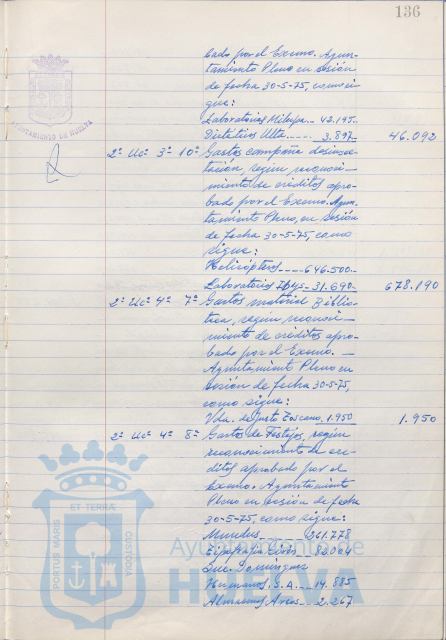 136
AYUNTAMIENTO DE HUELVA
bado por el Excmo. Ayun-
tamiento Pleno en sesión
de fecha 30-5-75, como si-
gue:
Laboratorios Milupa... 42.195.
Dietéticos Ulta..... 3.897. 46.092
2º Uc: 3º 10º Gastos campaña desinsec-
tación, según reconoci-
miento de créditos apro-
bado por el Excmo. Ayun-
tamiento Pleno, en sesión
de fecha 30-5-75, como
sigue:
Helicópteros.....646.500.-
Laboratorios 31.690 678.190
2º Uc: 4º 7º Gastos material Biblio-
teca, según reconoci-
miento de créditos apro-
bado por el Excmo. —
Ayuntamiento Pleno en
sesión de fecha 30-5-75,
como sigue:
Vda. de Justo Toscano. 1.950 1.950
2º Uc: 4º 8º Gastos de Festejos, según
reconocimiento de cré-
ditos aprobado por el
Excmo. Ayuntamiento
Pleno en sesión de fecha
30-5-75, como sigue:
261.778
83.004
Suc. Domínguez
Hermanos, S.A. — 14.885
Almacenes Arcos — 2.267
PORTUS MARIS ET TERRAE CUSTODIA
Ayuntamiento de
HUELVA